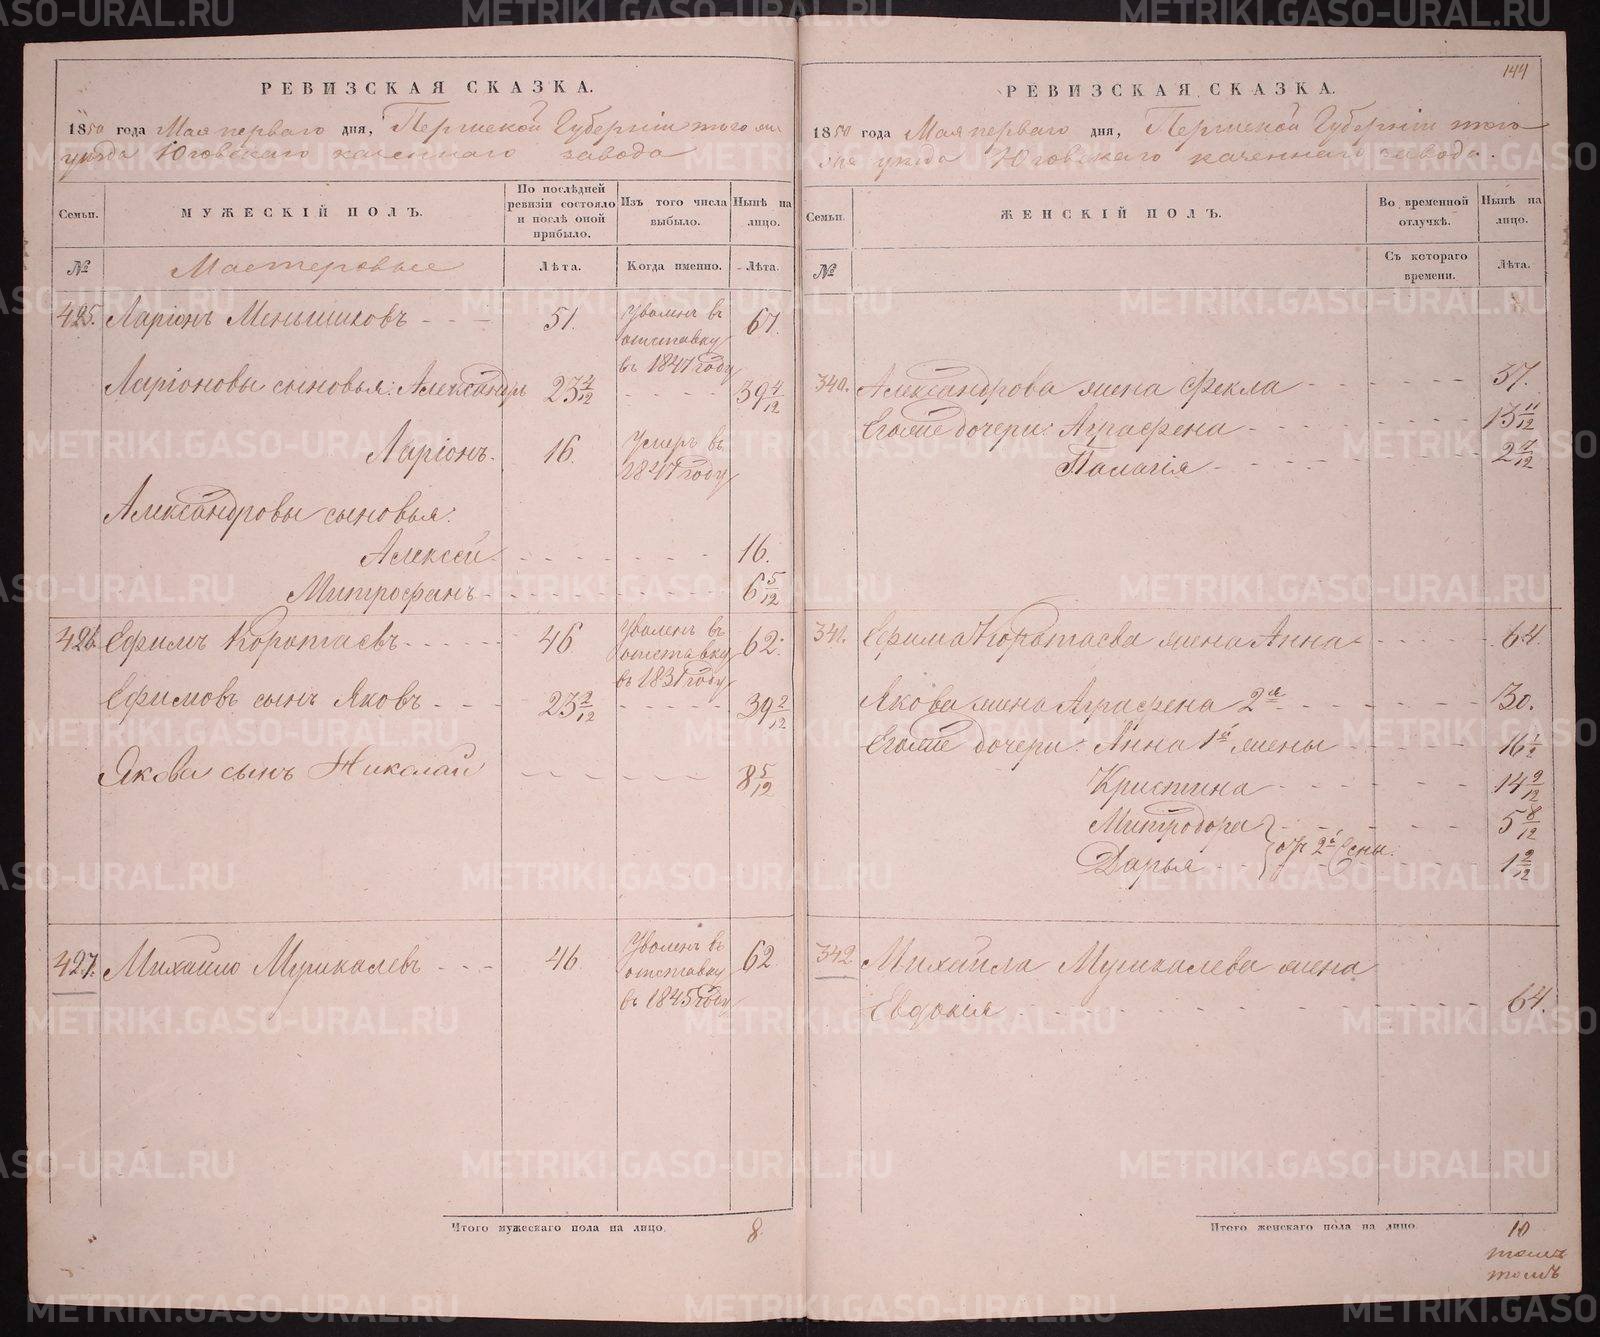 РЕВИЗСКАЯ СКАЗКА.
1850 года Мая перваго дня, Пермской Губернiи того же
уезда Юговскаго казеннаго завода
Семьи.
МУЖЕСКІЙ ПОЛЪ.
По послѣдней ревизіи состояло и послѣ оной прибыло.
Изъ того числа выбыло.
Нынѣ на лицо.
№
Мастеровые
Лѣта.
Когда именно.
Лѣта.
425. Ларіонъ Меньшиковъ - - - 51. Уволенъ въ отставку въ 1847 году 67.
Ларіоновы сыновья: Александръ 23 4/12 - - - - 39 4/12
Ларіонъ. 16. Умеръ въ 1847 году
Александровы сыновья:
Алексей - - - - - - - 16.
Митрофанъ - - - - - - - 6 5/12
426. Ефимъ Коротаевъ - - - - 46 Уволенъ въ отставку въ 1837 году 62.
Ефимовъ сынъ Яковъ - - - 23 2/12 - - - - - 39 2/12
Якова сынъ Николай - - - - - - - 8 5/12
427. Михайло Мушкалевъ - - - 46. Уволенъ въ отставку въ 1845 году 62
Итого мужескаго пола на лицо. 8
144
РЕВИЗСКАЯ СКАЗКА.
1850 года Мая перваго дня, Пермской Губернiи того
же уезда Юговскаго казеннаго завода.
Семьи.
ЖЕНСКІЙ ПОЛЪ.
Во временной отлучкѣ.
Нынѣ на лицо.
№
Съ котораго времени.
Лѣта.
340. Александрова жена Фекла - - - - - - - 37.
Его же дочери: Аграфена - - - - - - - 13 11/12
Палагія - - - - - - - 2 7/12
341. Ефима Коротаева жена Анна - - - - - 64.
Якова жена Аграфена 2я - - - - - - - 30.
Его же дочери: Анна 1й жены - - - - 16 1/2
Кристина - - - - - - 14 2/12
Митродора - - - - - - 5 8/12
Дарья - - от 2й жены. 1 2/12
342. Михайла Мушкалева жена
Евдокія - - - - - - - - - - 64.
Итого женскаго пола на лицо. 10